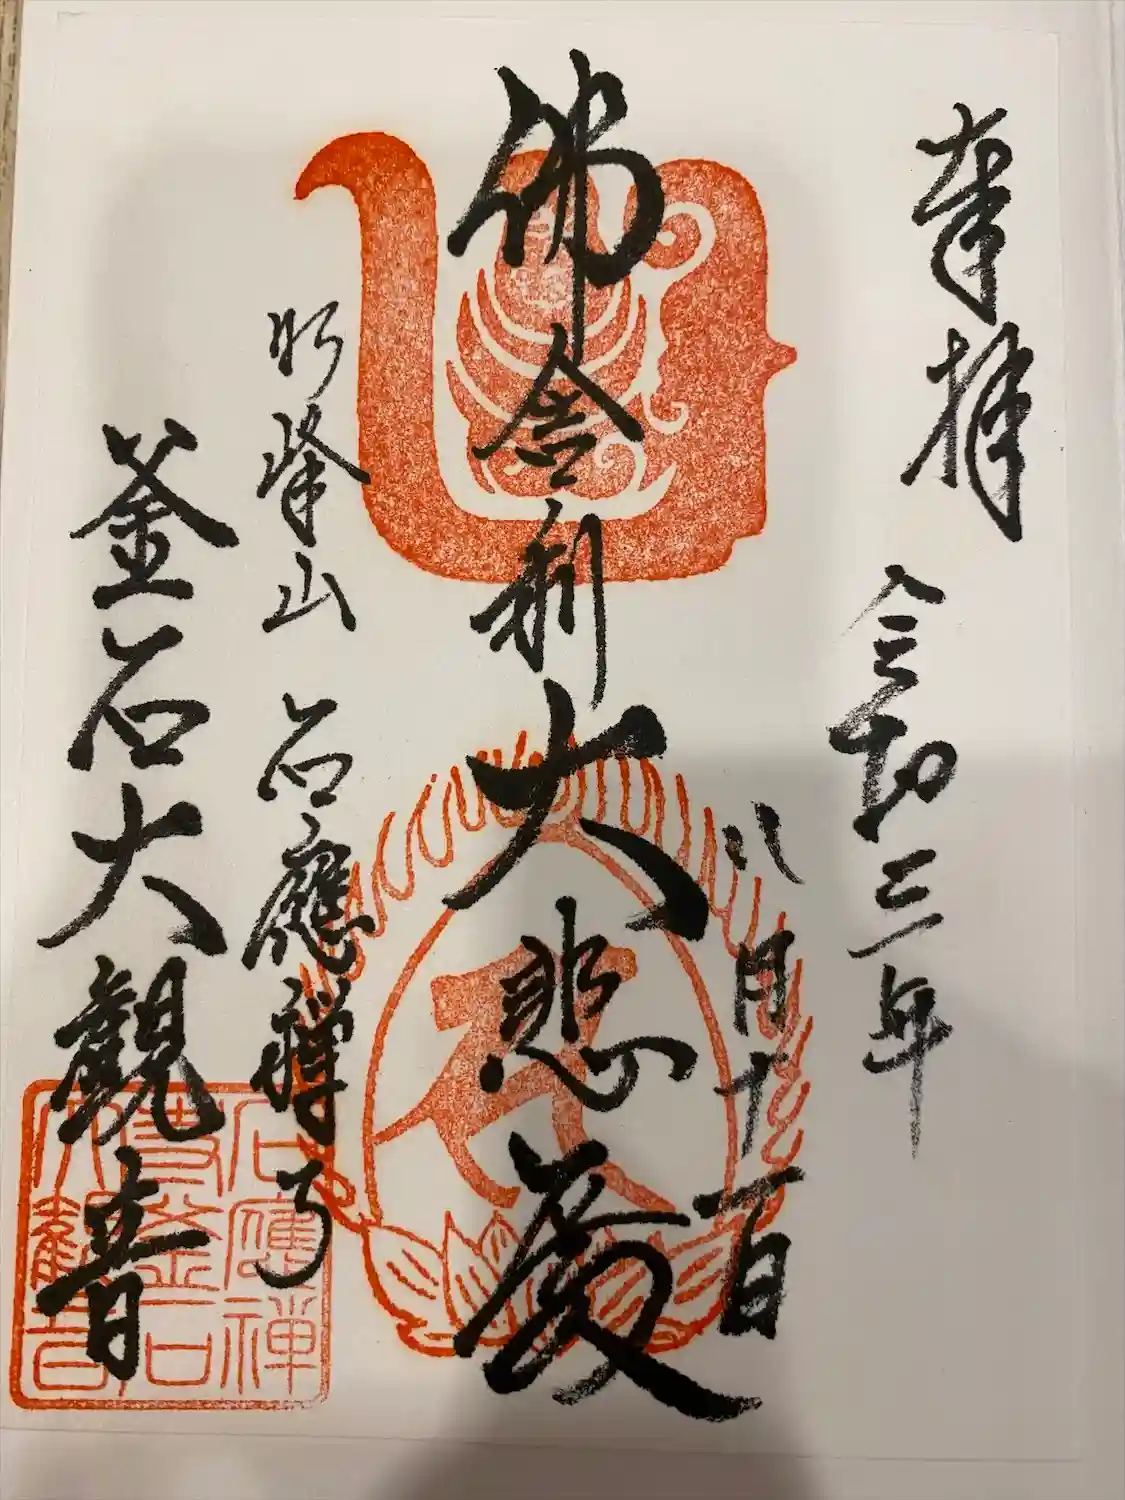 奉拝
令和三年
八月十一日
佛舎利
大悲殿
明峯山 石應禅寺
釜石大観音
石應禅
寺釜石
大観音